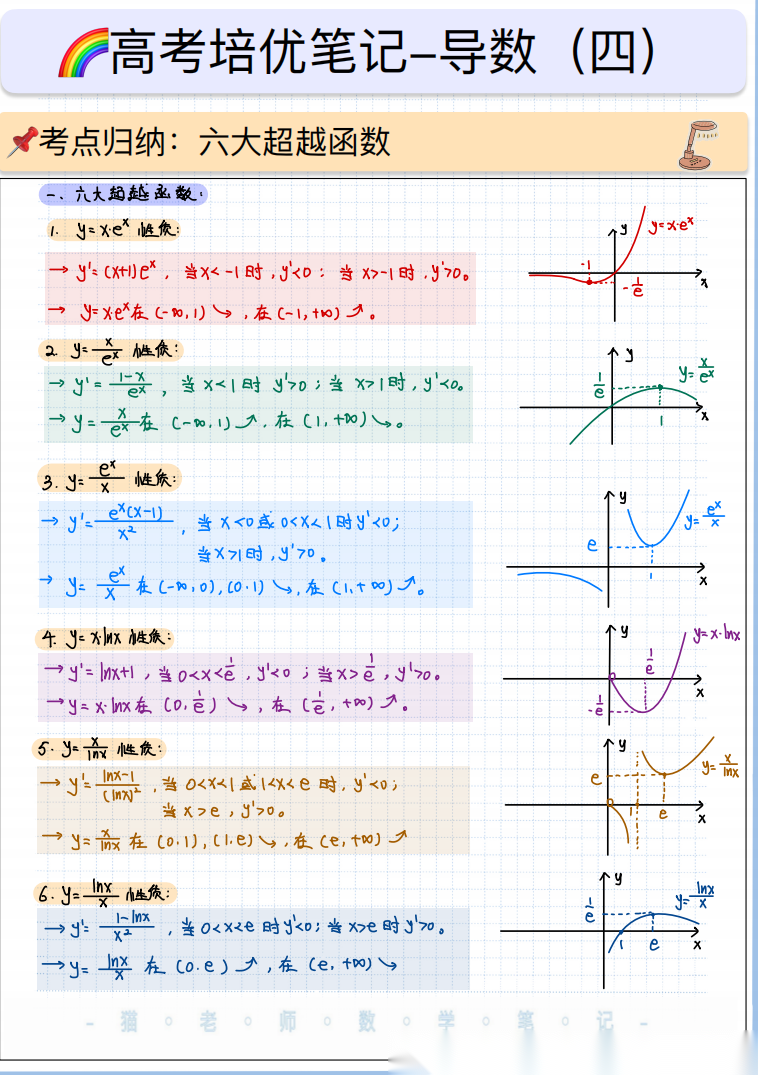 🌈高考培优笔记-导数（四）
📌考点归纳：六大超越函数
一、六大超越函数：
1. y=x·eˣ 性质：
→ y'=(x+1)eˣ，当x<-1时，y'<0；当x>-1时，y'>0。
→ y=x·eˣ在(-∞,1)↘，在(-1,+∞)↗。
y
y=x·eˣ
-1
-1/e
x
2. y=x/eˣ 性质：
→ y'=(1-x)/eˣ，当x<1时 y'>0；当x>1时，y'<0。
→ y=x/eˣ在(-∞,1)↗，在(1,+∞)↘。
y
y=x/eˣ
1/e
1
x
3. y=eˣ/x 性质：
→ y'=eˣ(x-1)/x²，当x<0或0<x<1时y'<0；
当x>1时，y'>0。
→ y=eˣ/x在(-∞,0),(0,1)↘，在(1,+∞)↗。
y
y=eˣ/x
e
1
x
4. y=x·lnx 性质：
→ y'=lnx+1，当0<x<1/e，y'<0；当x>1/e，y'>0。
→ y=x·lnx在(0,1/e)↘，在(1/e,+∞)↗。
y
y=x·lnx
1/e
-1/e
x
5. y=x/lnx 性质：
→ y'=(lnx-1)/(lnx)²，当0<x<1或1<x<e时，y'<0；
当x>e，y'>0。
→ y=x/lnx在(0,1),(1,e)↘，在(e,+∞)↗
y
y=x/lnx
e
1
e
x
6. y=lnx/x 性质：
→ y'=(1-lnx)/x²，当0<x<e时y'<0；当x>e时y'>0。
→ y=lnx/x在(0,e)↗，在(e,+∞)↘
y
y=lnx/x
1/e
1
e
x
- 猫 。 老 。 师 。 数 。 学 。 笔 。 记 -